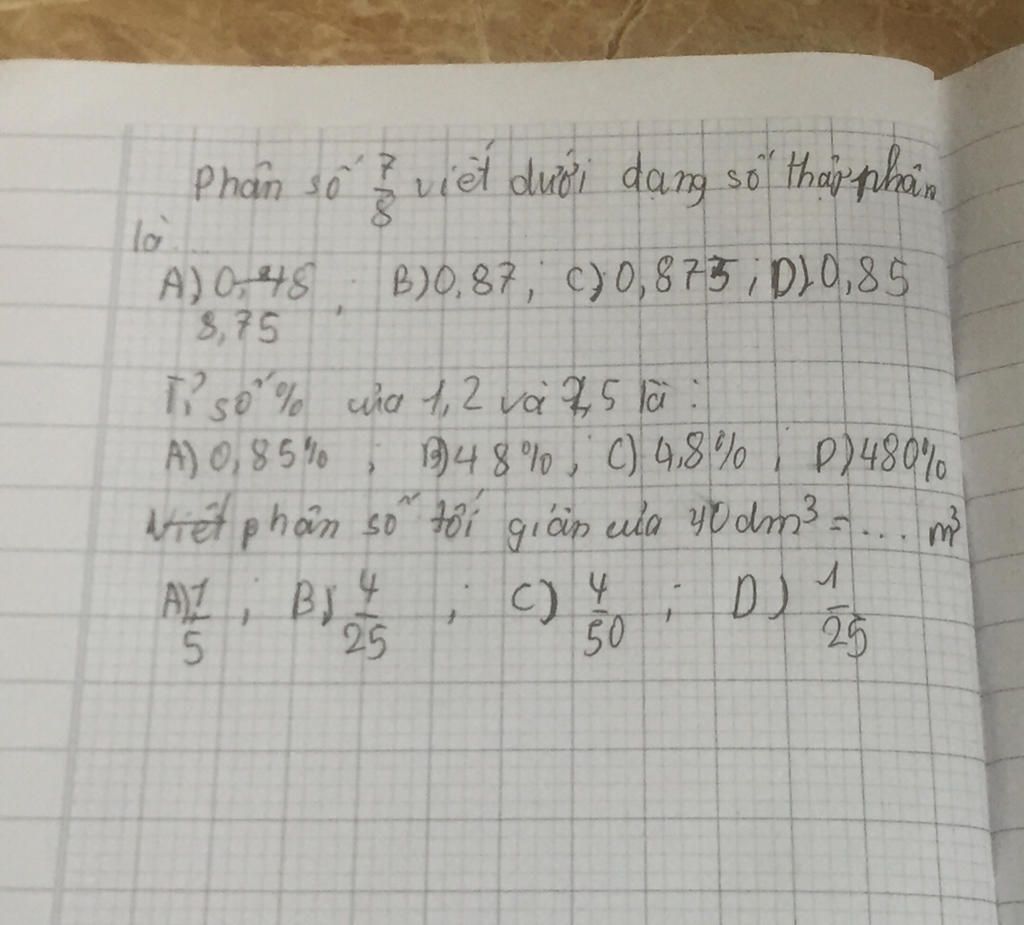 Phân số 7/8 viết dưới dạng số thập phân
là ...
A) 0,48 ; B) 0,87 ; C) 0,875 ; D) 0,85
8,75
Tỉ số % của 1,2 và 2,5 là :
A) 0,85% ; B) 48% ; C) 4,8% ; D) 480%
Viết phân số tối giản của 40dm³ = ... m³
A) 1/5 ; B) 4/25 ; C) 4/50 ; D) 1/25